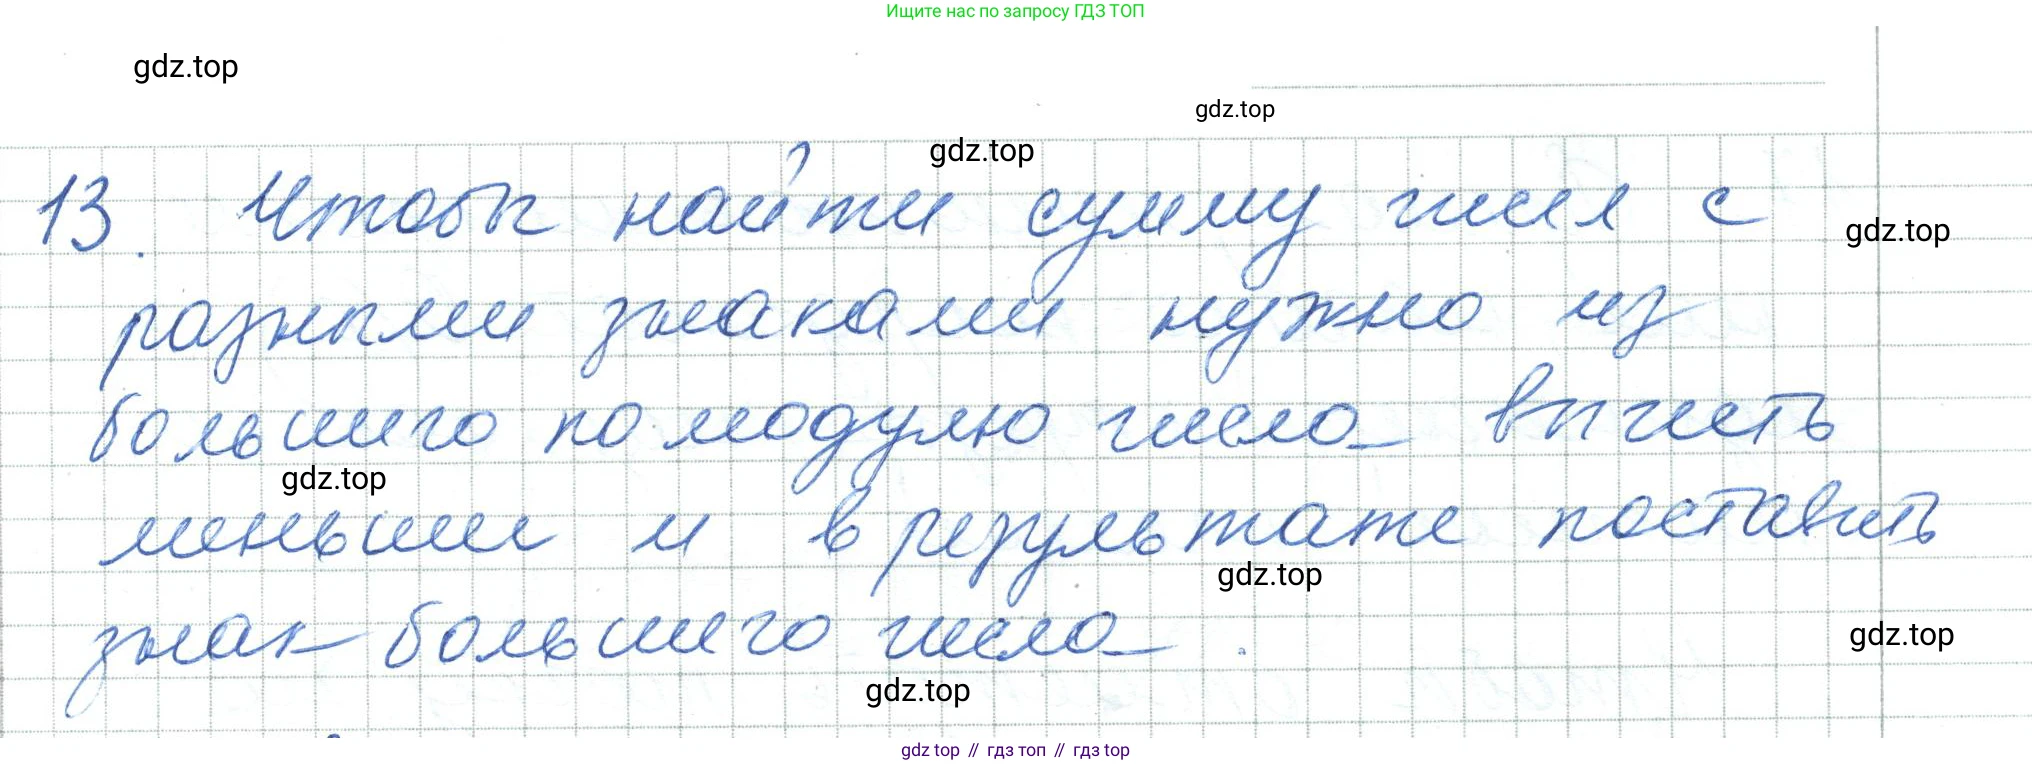 Ищите нас по запросу ГДЗ ТОП
gdz.top
gdz.top
gdz.top
13. Чтобы найти сумму чисел с
gdz.top
разными знаками нужно из
большего по модулю числа вычесть
gdz.top
меньшее и в результате поставить
gdz.top
знак большего числа.
gdz.top
gdz.top
gdz top // гдз топ // гдз top